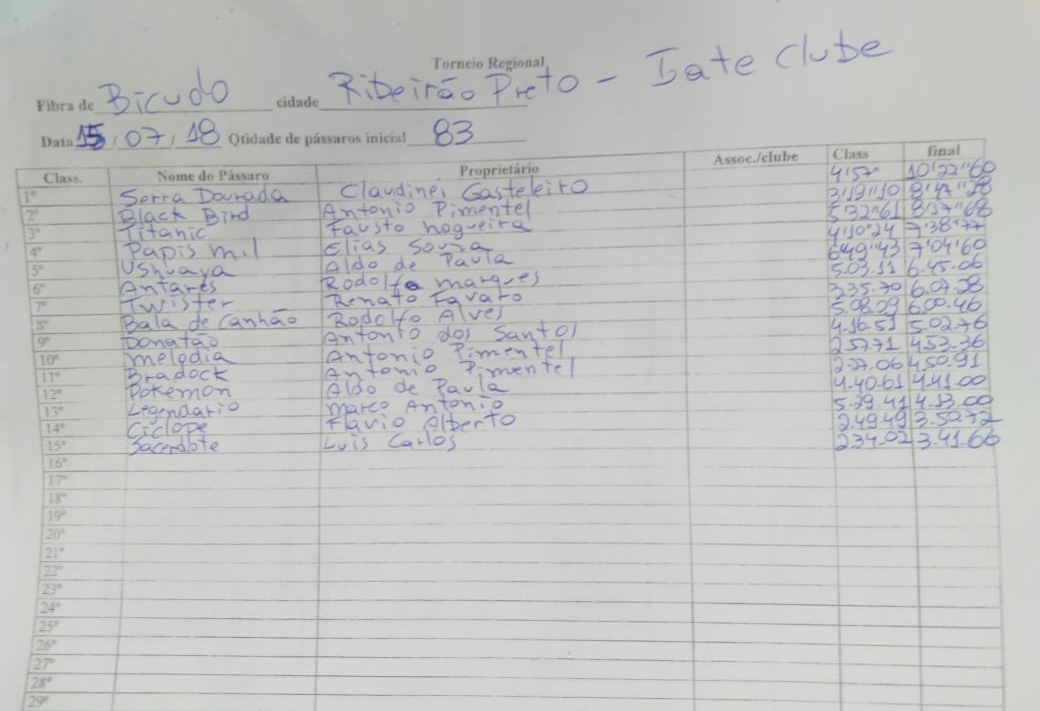 Torneio Regional
Fibra de Bicudo cidade Ribeirão Preto - Iate Clube
Data 15 / 07 / 18 Qtidade de pássaros inicial 83
Class. Nome do Pássaro Proprietário Assoc./clube Class final
1º Serra Dourada Claudinei Gasteleiro 4'57" 10'22"60
2º Black Bird Antonio Pimentel 3'19"10
3º Titanic Fausto nogueira 5'32"61
4º Papis mil Elias Souza 4'10"24 7'38"77
5º Ushuaya Aldo de Paula 6'49"43 7'04"60
6º Antares Rodolfo marques 5.03.11 6.45.06
7º Twister Renato Favaro 3.35.70
8º Bala de Canhão Rodolfo Alves 5.08.09 6.00.46
9º Donatão Antonio dos Santos 4.16.51 5.02.76
10º melodia Antonio Pimentel 2.57.71 4.53.36
11º Bradock Antonio Pimentel 2.27.06 4.50.91
12º Pokemon Aldo de Paula 4.40.61 4.41.00
13º Legendario marco Antonio 5.29.41 4.13.00
14º Ciclope Flavio Alberto 2.49.49 3.50.72
15º Sacerdote Luis Carlos 2.34.02 3.41.66
16º
17º
18º
19º
20º
21º
22º
23º
24º
25º
26º
27º
28º
29º